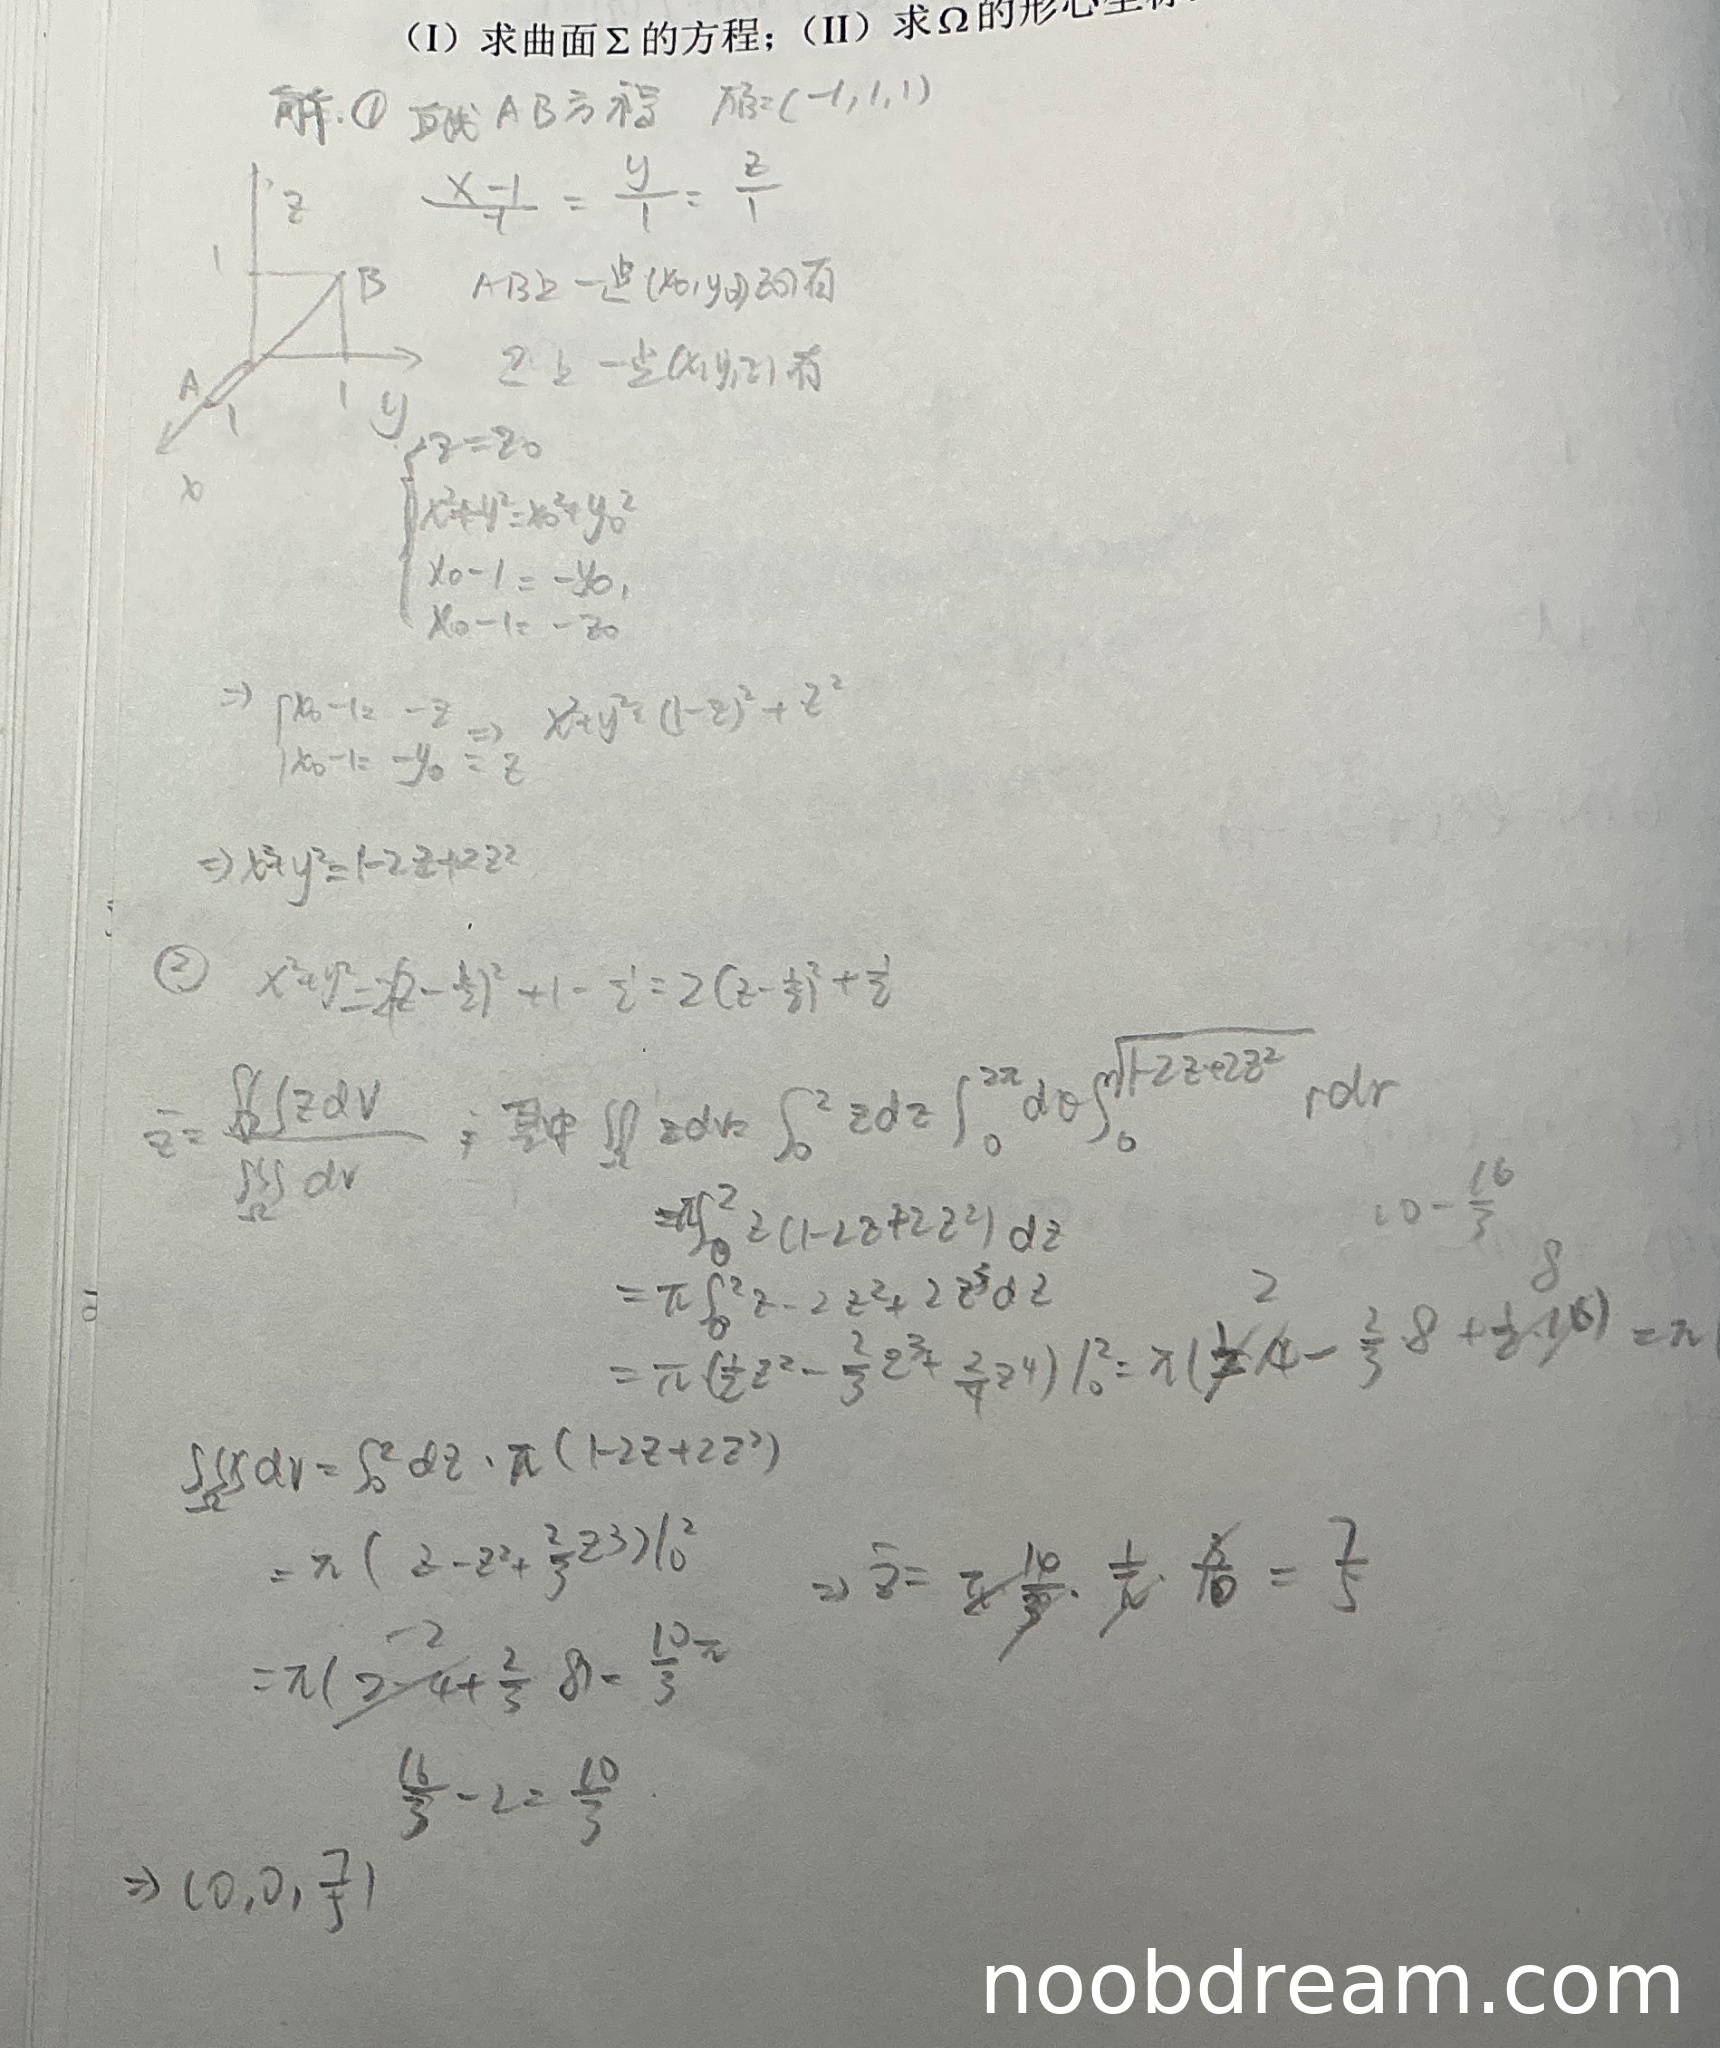 (I) 求曲面Σ的方程；(II) 求Ω的形心坐标
解.① 直线AB方程 AB=(-1,1,1)
(x-1)/(-1) = y/1 = z/1
z
1
B
AB上一点(x0,y0,z0)有
Σ上一点(x,y,z)有
A
1
1
y
x
z=z0
x²+y²=x0²+y0²
x0-1=-y0,
x0-1=-z0
⇒ { x0-1=-z ⇒ x²+y²=(1-z)²+z²
x0-1=-y0=z
⇒x²+y²=1-2z+2z²
② x²+y²=2(z-1/2)²+1-1/2=2(z-1/2)²+1/2
z̄=∭zdv/∭dv ; 其中∭zdv=∫₀²zdz∫₀^{2π}dθ∫₀^{√(1-2z+2z²)} rdr
=π∫₀²z(1-2z+2z²)dz
10-16/3
=π∫₀²z-2z²+2z³dz
=π(1/2z²-2/3z³+2/4z⁴)|₀²=π(1/2·4-2/3·8+1/2·16)=π(
2
8
∭dv=∫₀²dz·π(1-2z+2z²)
=π(z-z²+2/3z³)|₀²
⇒z̄=π·
·1/π·3/10=7/5
-2
=π(2-4+2/3·8)=10/3π
16/3-2=10/3
⇒(0,0,7/5)
noobdream.com